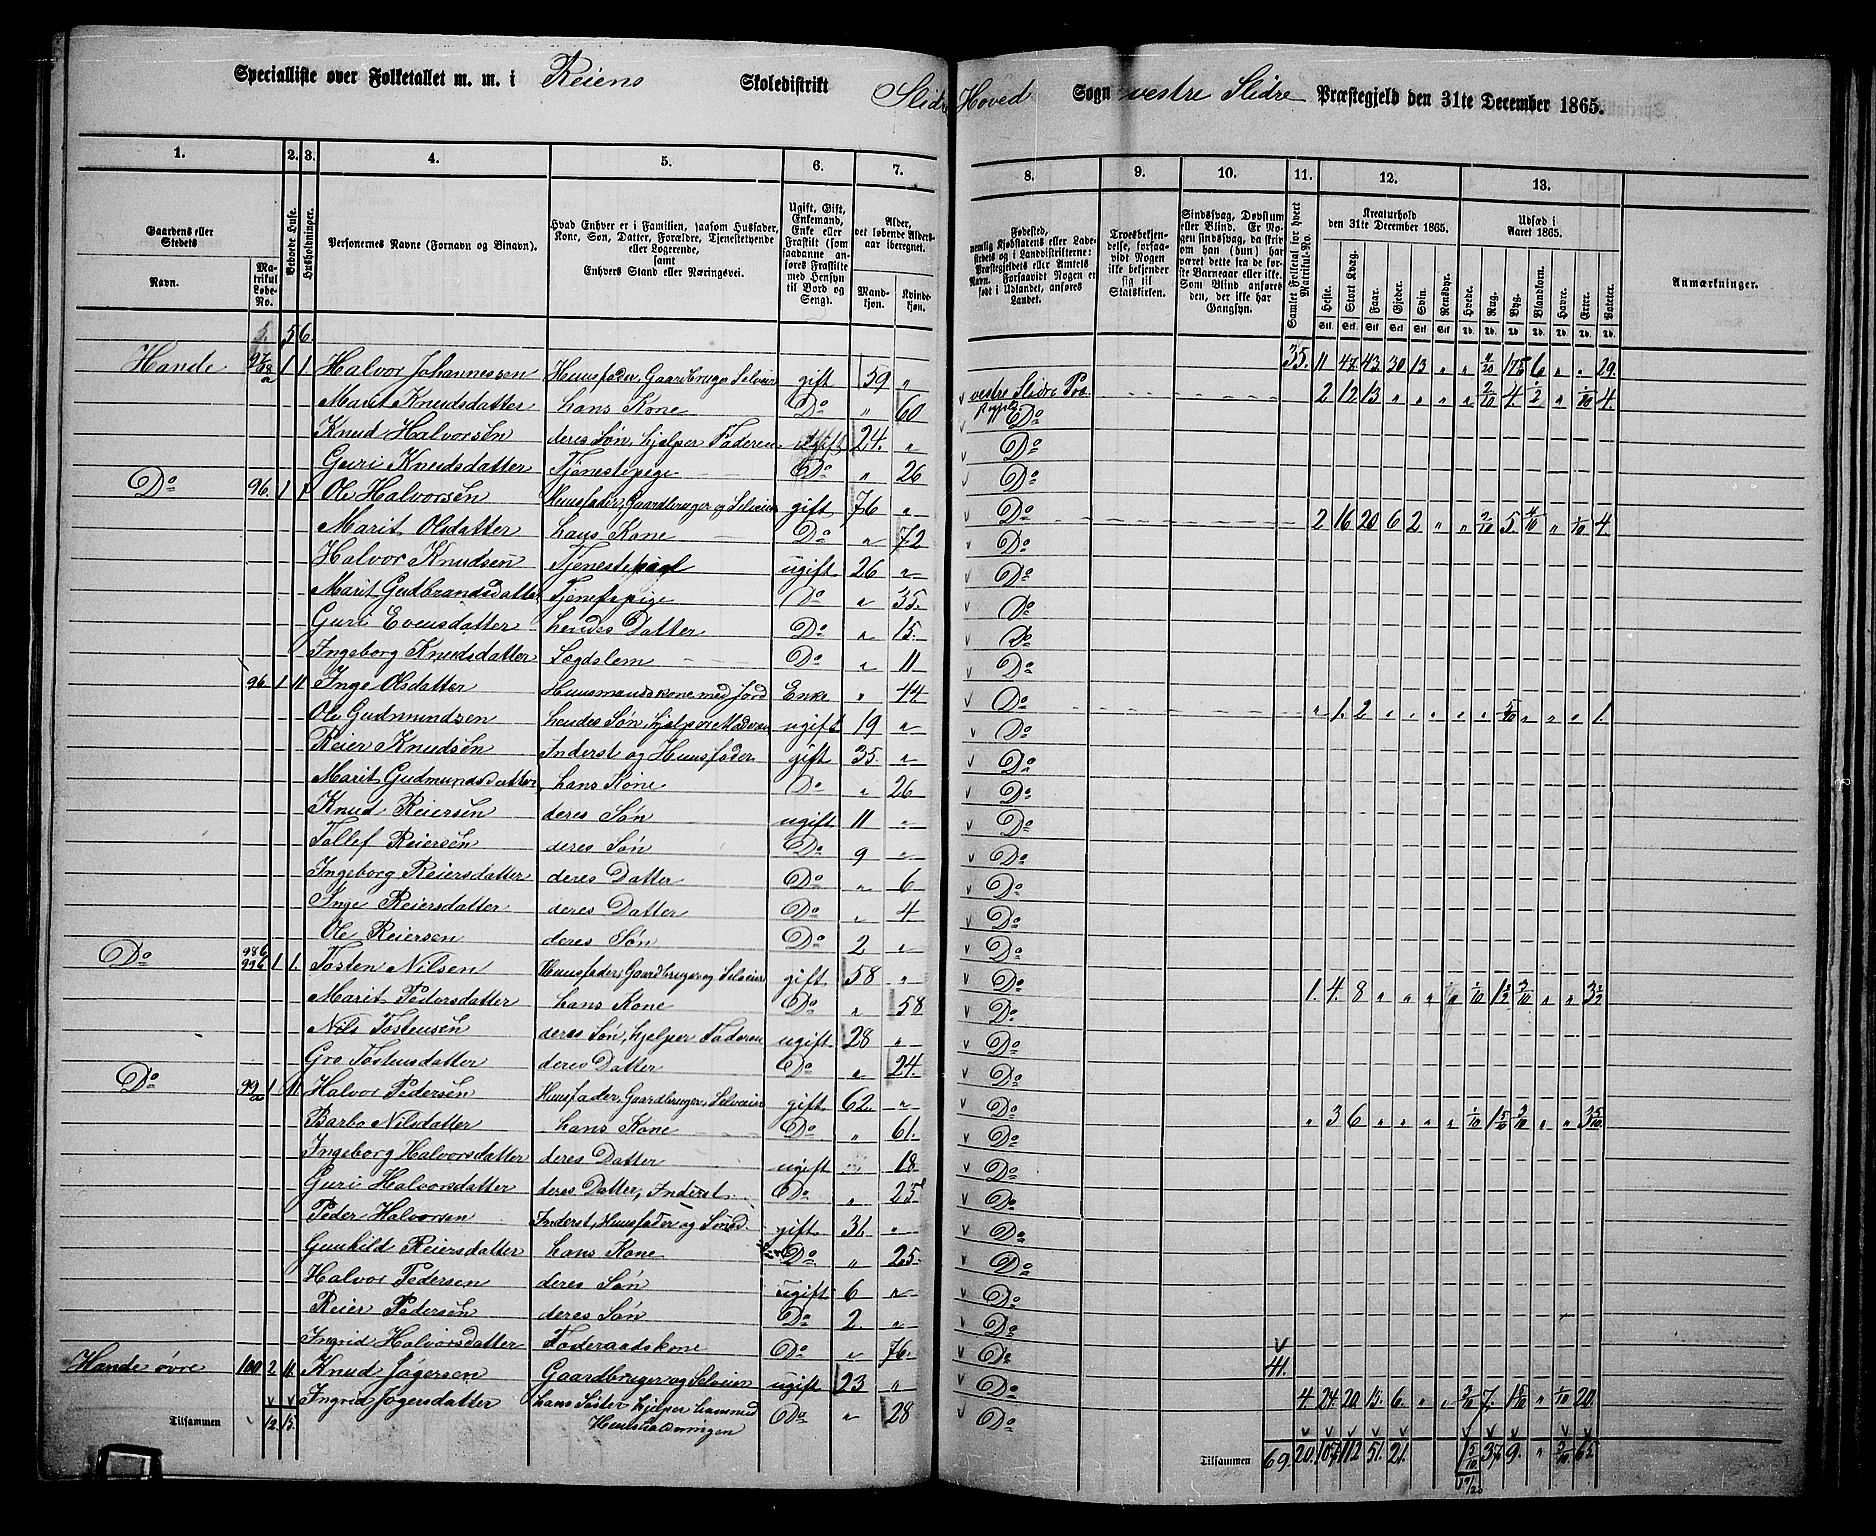 Specialliste over Folketallet m. m. i Reiens Skoledistrikt Slidre Hoved Sogn vestre Slidre Præstegjeld den 31te December 1865.
1. 2. 3. 4. 5. 6. 7. 8. 9. 10. 11. 12. 13.
Gaardens eller Stedets
Navn.
Matrikul Løbe-No.
Beboede Huse.
Husholdninger.
Personernes Navne (Fornavn og Binavn).
Hvad Enhver er i Familien, saasom Husfader, Kone, Søn, Datter, Forældre, Tjenestetyende eller Logerende, samt Enhvers Stand eller Næringsvei.
Ugift, Gift, Enkemand, Enke eller Fraskilt (som saadanne anføres Fraskilte med Hensyn til Bord og Seng).
Alder, det løbende Alders-aar iberegnet.
Mandkjøn. Kvindekjøn.
Fødested, nemlig Kjøbstadens eller Ladestedets og i Landdistrikterne: Præstegjeldets eller Amtets Navn. Forsaavidt Nogen er født i Udlandet, anføres Landet.
Troesbekjendelse, forsaavidt Nogen ikke bekjender sig til Statskirken.
Sindssvag, Døvstum eller Blind. Er Nogen sindssvag, da skriv om han (hun) har været dette fra de første Barneaar eller ikke. Som Blind anføres den, der ikke har Gangsyn.
Samlet Folketal for hvert Matrikul-No.
Kreaturhold den 31te December 1865.
Heste. Stort Kvæg. Faar. Gjeder. Svin. Rensdyr.
Udsæd i Aaret 1865.
Hvede. Rug. Byg. Blandkorn. Havre. Erter. Poteter.
Anmærkninger.
5 6.
35. 11 47 43 30 13 " " 175 6 " " 29.
Hande 1 1 Halvor Johannessen Huusfader, Gaardbruger Selveier gift 59 " vestre Slidre Præ 2 12 13 " " " " 2/10 4. 1/2 " 1/10 4.
Marit Knudsdatter hans Kone Do " 60 Do
Knud Halvorsen deres Søn, hjelper Faderen ugift 24. " Do
Guri Knudsdatter Tjenestepige Do " 26 Do
Do 96. 1 1 Ole Halvorsen Huusfader, Gaardbruger og Selveier gift 76 " Do 2 16 20 6 2 " " 2/10 5. 4/10 " 1/10 4.
Marit Olsdatter hans Kone Do " 72 Do
Halvor Knudsen Tjenestekarl ugift 26 " Do
Marit Gudbrandsdatter Tjenestepige Do " 35. Do
Guri Evensdatter hendes Datter Do " 15. Do
Ingeborg Knudsdatter Lægdslem Do " 11 Do
96 1 11 Inge Olsdatter Huusmandskone med Jord Enke " 44. Do " 1. 2 " " " " " 5/10 " " " 1.
Ole Gudmundsen hendes Søn, hjelper Moderen ugift 19 " Do
Reier Knudsen Inderst og Huusfader gift 35. " Do
Marit Gudmundsdatter hans Kone Do " 26 Do
Knud Reiersen deres Søn ugift 11 " Do
Tollef Reiersen deres Søn Do 9 " Do
Ingeborg Reiersdatter deres Datter Do " 6 Do
Inge Reiersdatter deres Datter Do " 4 Do
Ole Reiersen deres Søn Do 2 " Do
Do 98b 99b 1 1. Tosten Nilsen Huusfader Gaardbruger og Selveier gift 58 " Do 1. 4. 8 " " " 1/10 1 1/2 3/10 " " 3 1/2
Marit Pedersdatter hans Kone Do " 58 Do
Nils Tostensen deres Søn, hjelper Faderen ugift 28 " Do
Gro Tostensdatter deres Datter Do " 24. Do
Do 99/a 1 11 Halvor Pedersen Huusfader, Gaardbruger, Selveier gift 62. " Do " 3 6 " " " " 1/10 1 5/10 3/10 " " 3 5/10
Barbo Nilsdatter hans Kone Do " 61. Do
Ingeborg Halvorsdatter deres Datter ugift " 18 Do
Guri Halvorsdatter deres Datter, Inderst Do " 25 Do
Peder Halvorsen Inderst, Huusfader og Smed gift 31. " Do
Gunhild Reiersdatter hans Kone Do " 25. Do
Halvor Pedersen deres Søn ugift 6 " Do
Reier Pedersen deres Søn Do 2. " Do
Ingrid Halvorsdatter Føderaadskone Do " 76. Do
Hande øvre 100 2 11 Knud Jøgersen Gaardbruger og Selveier ugift 23 " Do 41. 4. 24. 20. 15. 6. " " 2/10 7. " 1/10 20.
Ingrid Jøgersdatter hans Søster hjelper ham med Huusholdningen Do " 28 Do
Tilsammen 12 15.
Tilsammen 69. 20. 107 112 51. 21. 37 9. " 65.